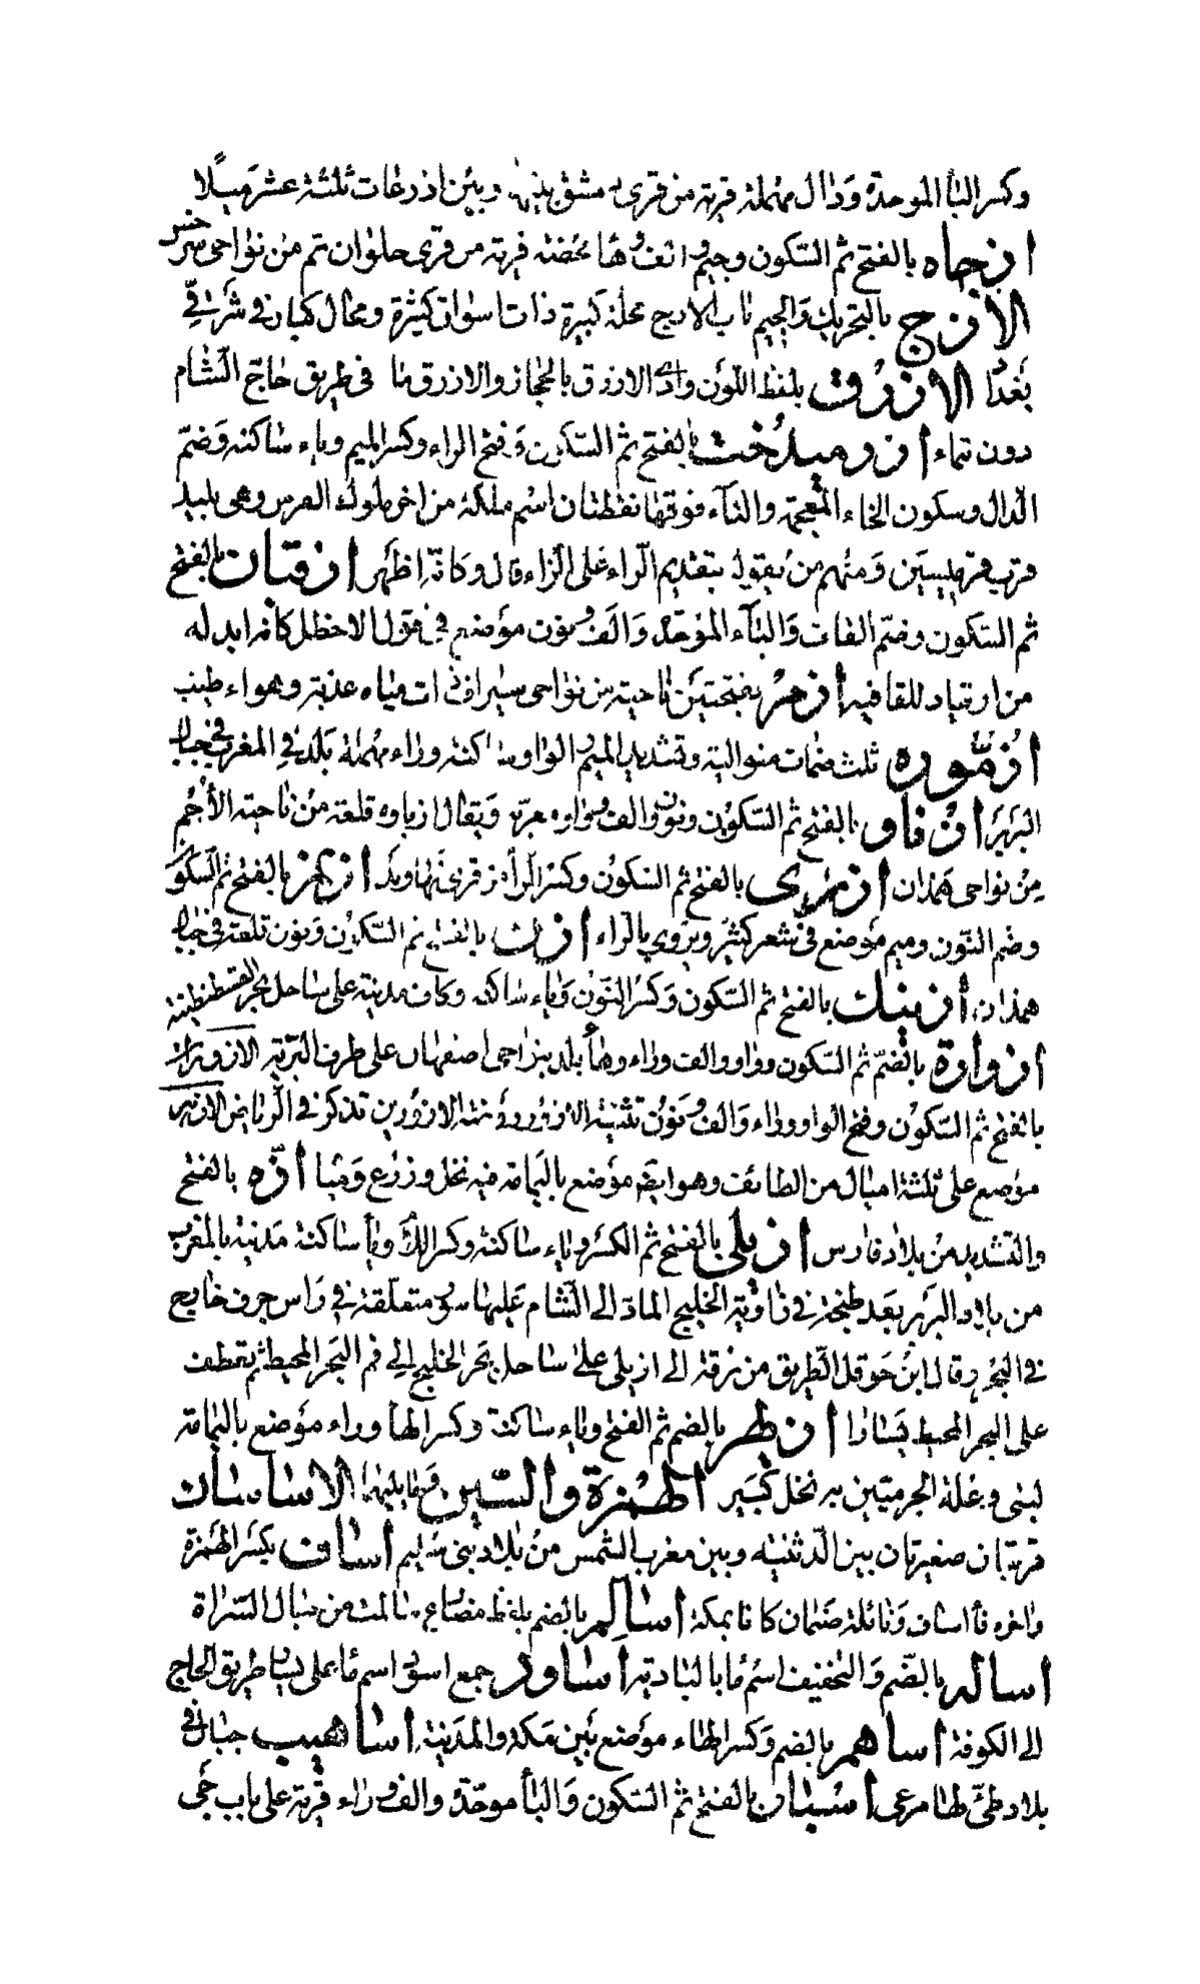 وكسر الباء الموحدة ودال مهملة قرية من قرى دمشق بينها وبين اذرعات ثلثة عشر ميلا
ازجاه بالفتح ثم السكون وجيم والف وهاء محضة قرية من قرى خابران ثم من نواحى سرخس
الازج بالتحريك والجيم باب الازج محلة كبيرة ذات اسواق كثيرة ومحال كبار فى شرقى
بغداد الازرق بلفظ اللون وادى الازرق بالحجاز والازرق ماء فى طريق حاج الشام
دون تيماء ازرميدخت بالفتح ثم السكون وفتح الراء وكسر الميم وياء ساكنه وضم
الدال وسكون الخاء المعجمة والتاء فوقها نقطتان اسم ملكة من اخر ملوك الفرس وهى بليد
قرب قرميسين ومنهم من يقول بتقديم الراء على الزاء قال وكانه اظهر ازقبان بالفتح
ثم السكون وضم القاف والباء الموحدة والف ونون موضع فى قول الاخطل كانه ابدله
من ارتياد للقافيه ازم بفتحتين ناحية من نواحى سيراف ذات مياه عذبة وهواء طيب
ازمورة ثلث ضمات متوالية وتشديد الميم والواو ساكنة وراء مهملة بلد فى المغرب فى جبال
البربر ازناو بالفتح ثم السكون ونون والف وواو ويقال ازناوه قلعة من ناحية الاجم
من نواحى همذان ازنرى بالفتح ثم السكون وكسر الراء من قرى نهاوند ازنم بالفتح ثم السكون
وضم النون وميم موضع فى شعر كثير ويروى بالراء ازن بالفتح ثم السكون ونون قلعة فى جبال
همذان ازنيك بالفتح ثم السكون وكسر النون وياء ساكنه وكاف مدينة على ساحل بحر القسطنطينة
ازوارة بالضم ثم السكون وواو والف وراء وهاء بليد بنواحى اصفهان على طرف البرية الازوران
بالفتح ثم السكون وفتح الواو وراء والف ونون تثنية الازور روضة الازورين تذكر فى الرياض الازهر
موضع على ثلثة اميال من الطائف وهو ايضا موضع باليمامة فيه نخل وزرع ومياه ازه بالفتح
والتشديد من بلاد فارس ازيلى بالفتح ثم الكسر وياء ساكنة وكسر اللام وياء ساكنة مدينة بالمغرب
من بلاد البربر بعد طنجة فى زاوية الخليج الماد الى الشام عليها سور متعلقة فى راس جرف خارج
فى البحر وقال ابن حوقل الطريق من برقة الى ازيلى على ساحل بحر الخليج الى فم البحر المحيط ثم يعطف
على البحر المحيط يسارا ازيهر بالضم ثم الفتح وياء ساكنة وكسر الهاء وراء موضع باليمامة
لبنى وعلة الجرميين به نخل كثير الهمزة والسين وما يليهما الاساسان
قريتان صغيرتان بين الدثنية وبين مغرب الشمس من بلاد بنى سليم اساف بكسر الهمزة
واخره فاء اساف ونائلة صنمان كانا بمكة اسالم بالضم بلفظ مضارع سالمت من جبال السراة
اساله بالضم والتخفيف اسم ماء بالبادية اساود جمع اسود اسم ماء على يسار طريق الحاج
الى الكوفة اساهم بالضم وكسر الهاء موضع بين مكة والمدينة اساهيب جبال فى
بلاد طئ لها مرعى اسبار بالفتح ثم السكون والباء موحدة والف وراء قرية على باب جى